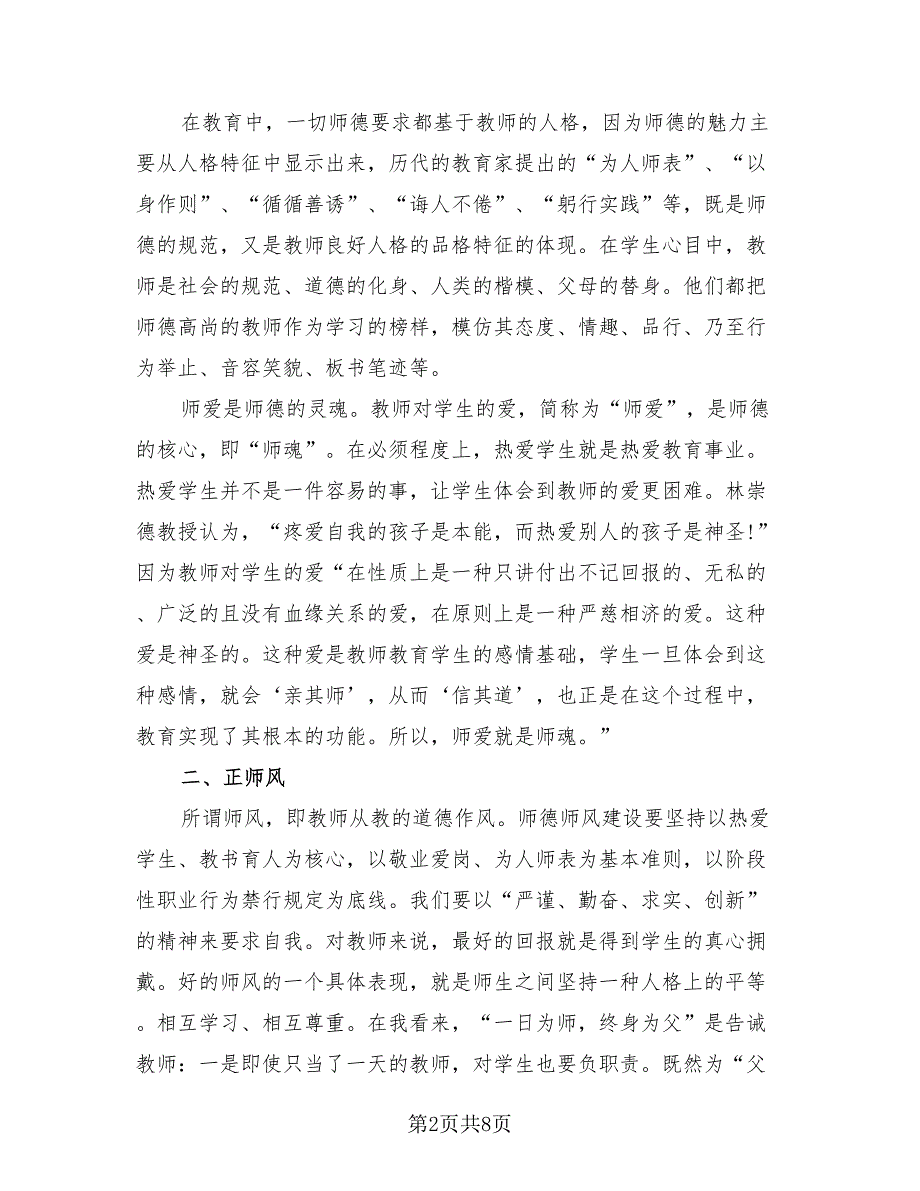 在教育中，一切师德要求都基于教师的人格，因为师德的魅力主
要从人格特征中显示出来，历代的教育家提出的“为人师表”、“以
身作则”、“循循善诱”、“诲人不倦”、“躬行实践”等，既是师
德的规范，又是教师良好人格的品格特征的体现。在学生心目中，教
师是社会的规范、道德的化身、人类的楷模、父母的替身。他们都把
师德高尚的教师作为学习的榜样，模仿其态度、情趣、品行、乃至行
为举止、音容笑貌、板书笔迹等。
师爱是师德的灵魂。教师对学生的爱，简称为“师爱”，是师德
的核心，即“师魂”。在必须程度上，热爱学生就是热爱教育事业。
热爱学生并不是一件容易的事，让学生体会到教师的爱更困难。林崇
德教授认为，“疼爱自我的孩子是本能，而热爱别人的孩子是神圣!”
因为教师对学生的爱“在性质上是一种只讲付出不记回报的、无私的
、广泛的且没有血缘关系的爱，在原则上是一种严慈相济的爱。这种
爱是神圣的。这种爱是教师教育学生的感情基础，学生一旦体会到这
种感情，就会‘亲其师’，从而‘信其道’，也正是在这个过程中，
教育实现了其根本的功能。所以，师爱就是师魂。”
二、正师风
所谓师风，即教师从教的道德作风。师德师风建设要坚持以热爱
学生、教书育人为核心，以敬业爱岗、为人师表为基本准则，以阶段
性职业行为禁行规定为底线。我们要以“严谨、勤奋、求实、创新”
的精神来要求自我。对教师来说，最好的回报就是得到学生的真心拥
戴。好的师风的一个具体表现，就是师生之间坚持一种人格上的平等
。相互学习、相互尊重。在我看来，“一日为师，终身为父”是告诫
教师：一是即使只当了一天的教师，对学生也要负职责。既然为“父
第2页共8页